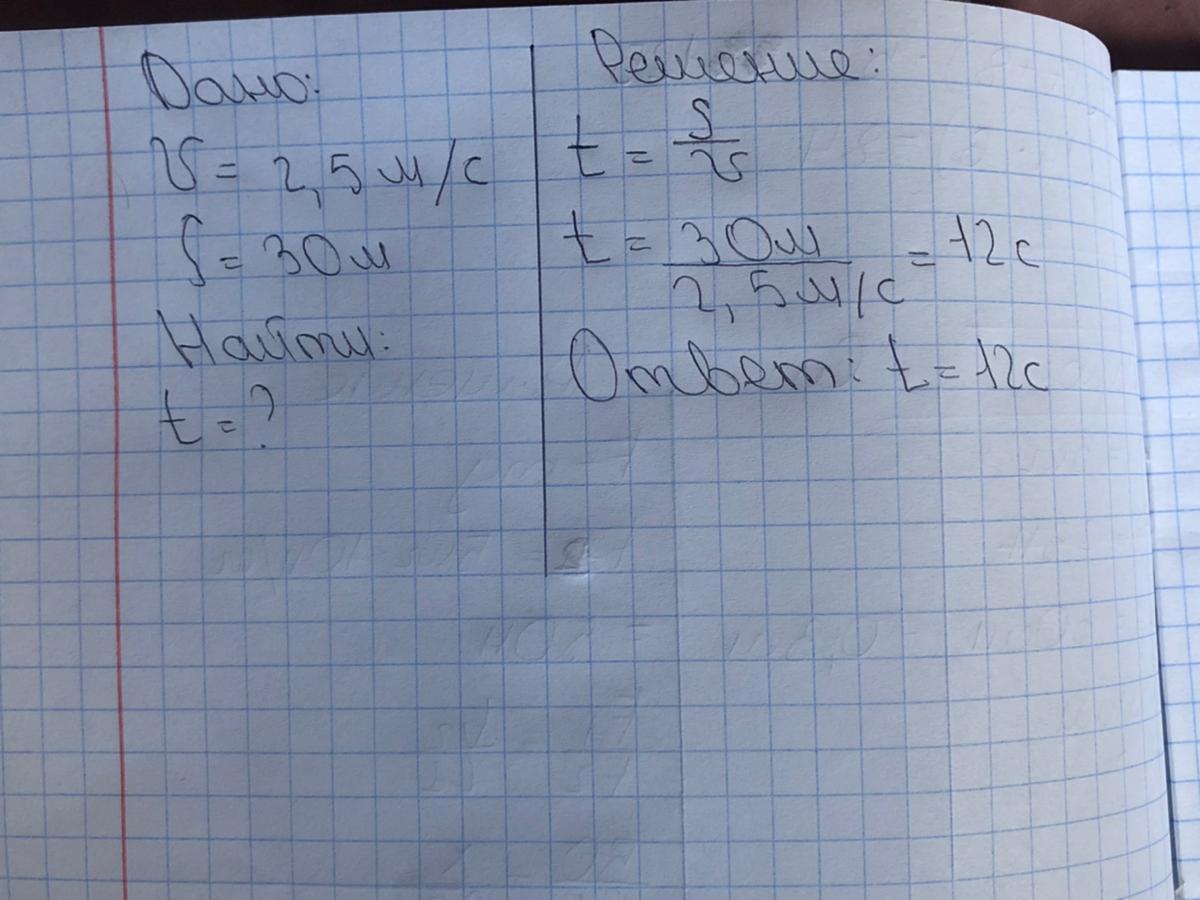 Дано:
υ = 2,5 м/с
S = 30 м
Найти:
t = ?
Решение:
t = S/υ
t = 30м / 2,5 м/с = 12с
Ответ: t = 12с